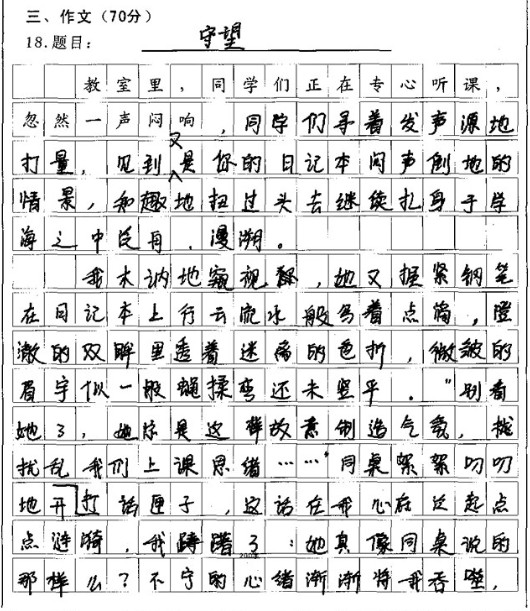 三、作文（70分）
18.题目：守望
教室里，同学们正在专心听课，
忽然一声闷响，同学们寻着发声源地
打量，见到又是你的日记本闷声倒地的
情景，知趣地扭过头去继续扎身于学
海之中泛舟、漫溯。
我木讷地窥视你，她又握紧钢笔
在日记本上行云流水般写着点滴，澄
澈的双眸里透着迷离的色折，微皱的
眉宇似一般绳揉弯还未竖平。"别看
她了，她总是这样故意制造气氛，扰
扰乱我们上课思绪……"同桌絮絮叨叨
地开打话匣子，这话在我心在泛起点
点涟漪，我踌躇了：她真像同桌说的
那样么？不宁的心绪渐渐将我吞噬，